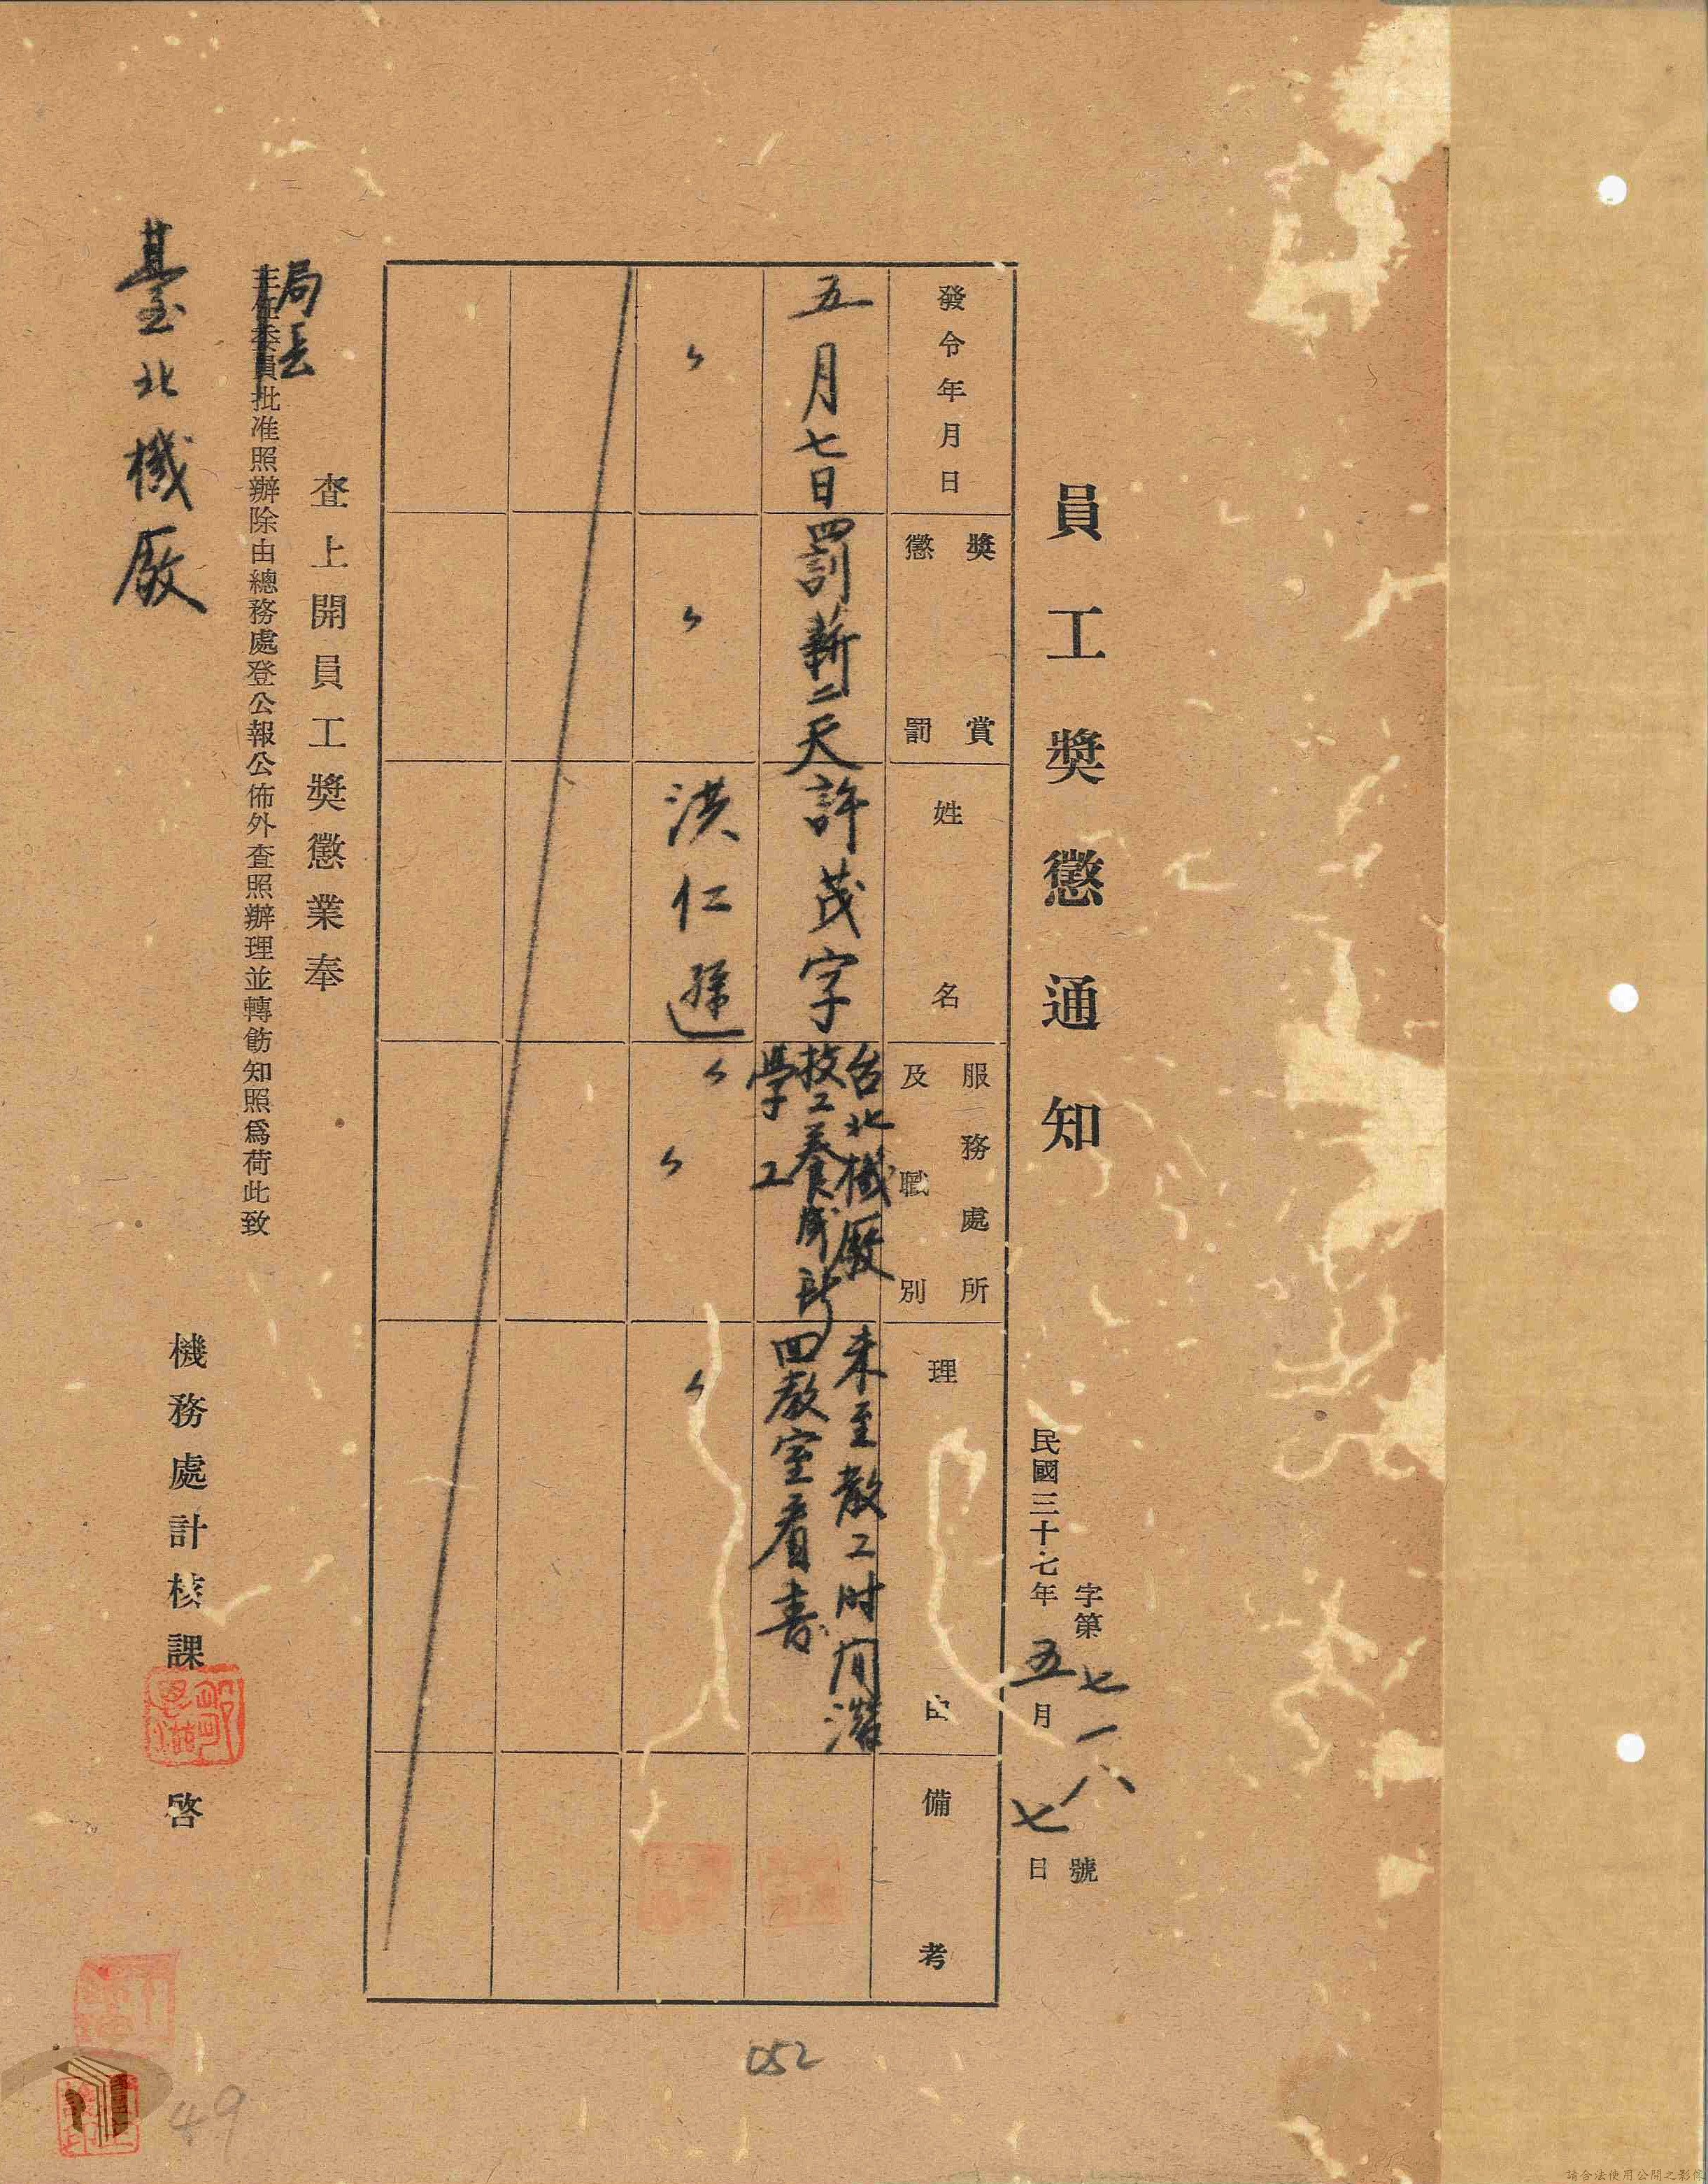 員工奬懲通知
字第七一八號
民國三十七年五月七日
發令年月日
奬賞
懲罰
姓名
服務處所
及職別
理由
備考
五月七日
罰薪二天
許茂字
台北機厰
技工養成所
學工
未至散工时间潛
回教室看書
〃
〃
洪仁遜
〃
〃
〃
查上開員工奬懲業奉
局長
主任委員批准照辦除由總務處登公報公佈外查照辦理並轉飭知照爲荷此致
機務處計核課 啓
臺北機厰
052
49
請合法使用公開之影像